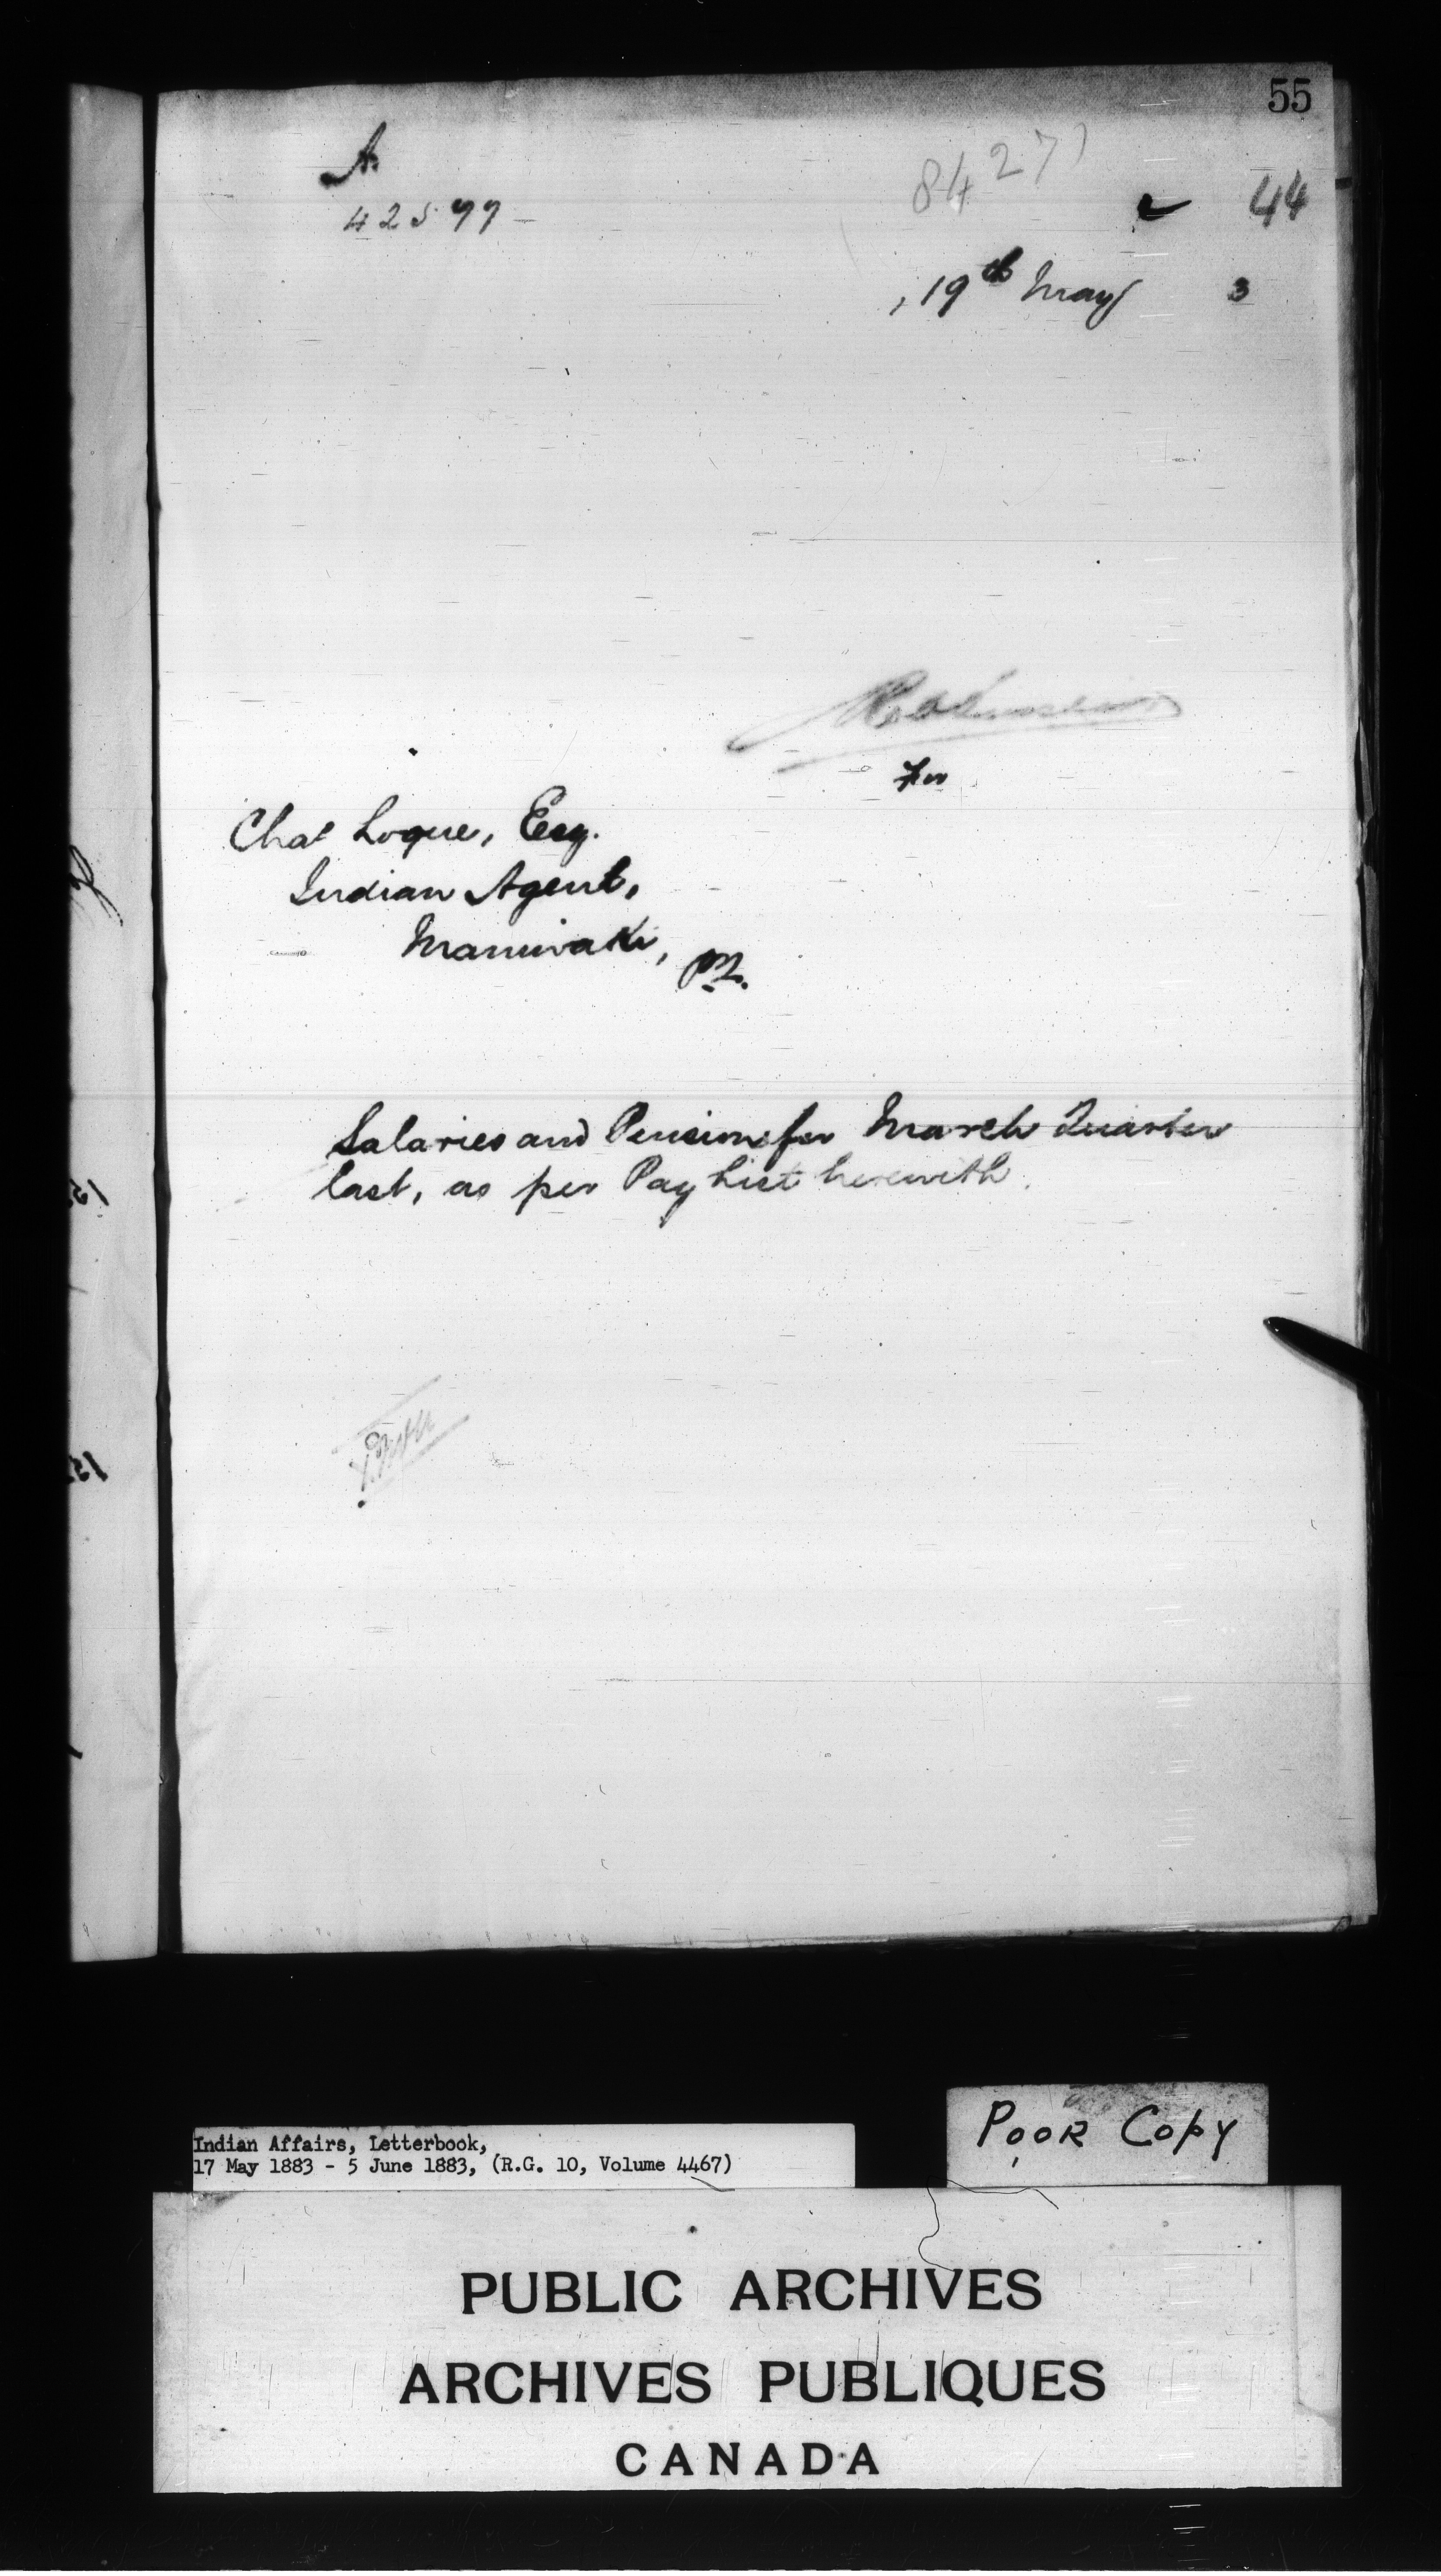 55
A.
42577
8427
44
, 19th May 3
For
Chas Logue, Esq.
Indian Agent,
Maniwaki, P.Q.
Salaries and Pensions for March Quarter
last, as per Pay List herewith.
Poor Copy
Indian Affairs, Letterbook,
17 May 1883 - 5 June 1883, (R.G. 10, Volume 4467)
PUBLIC ARCHIVES
ARCHIVES PUBLIQUES
CANADA